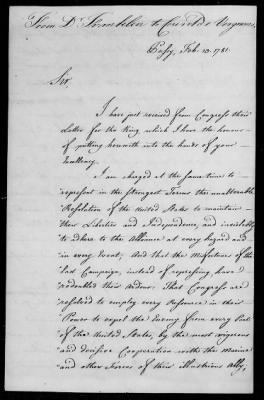 From Dr. Franklin to Count de Vergennes.
Passy, Feb. 13. 1781.
Sir,
I have just received from Congress their
Letter for the King which I have the honour
of putting herewith into the hands of your
Excellency.
I am charged at the same time to
represent in the strongest Terms the unalterable
Resolution of the United States to maintain
their Liberties and Independence, and inviolably
to adhere to the Alliance at every hazard and
in every Event; And that the Misfortunes of the
last Campaign, instead of repressing, have
redoubled their Ardour. That Congress are
resolved to employ every Resource in their
Power to expel the Enemy from every Part
of the United States, by the most vigorous
and decisive Cooperation with the Marine
and other Forces of their illustrious Ally,